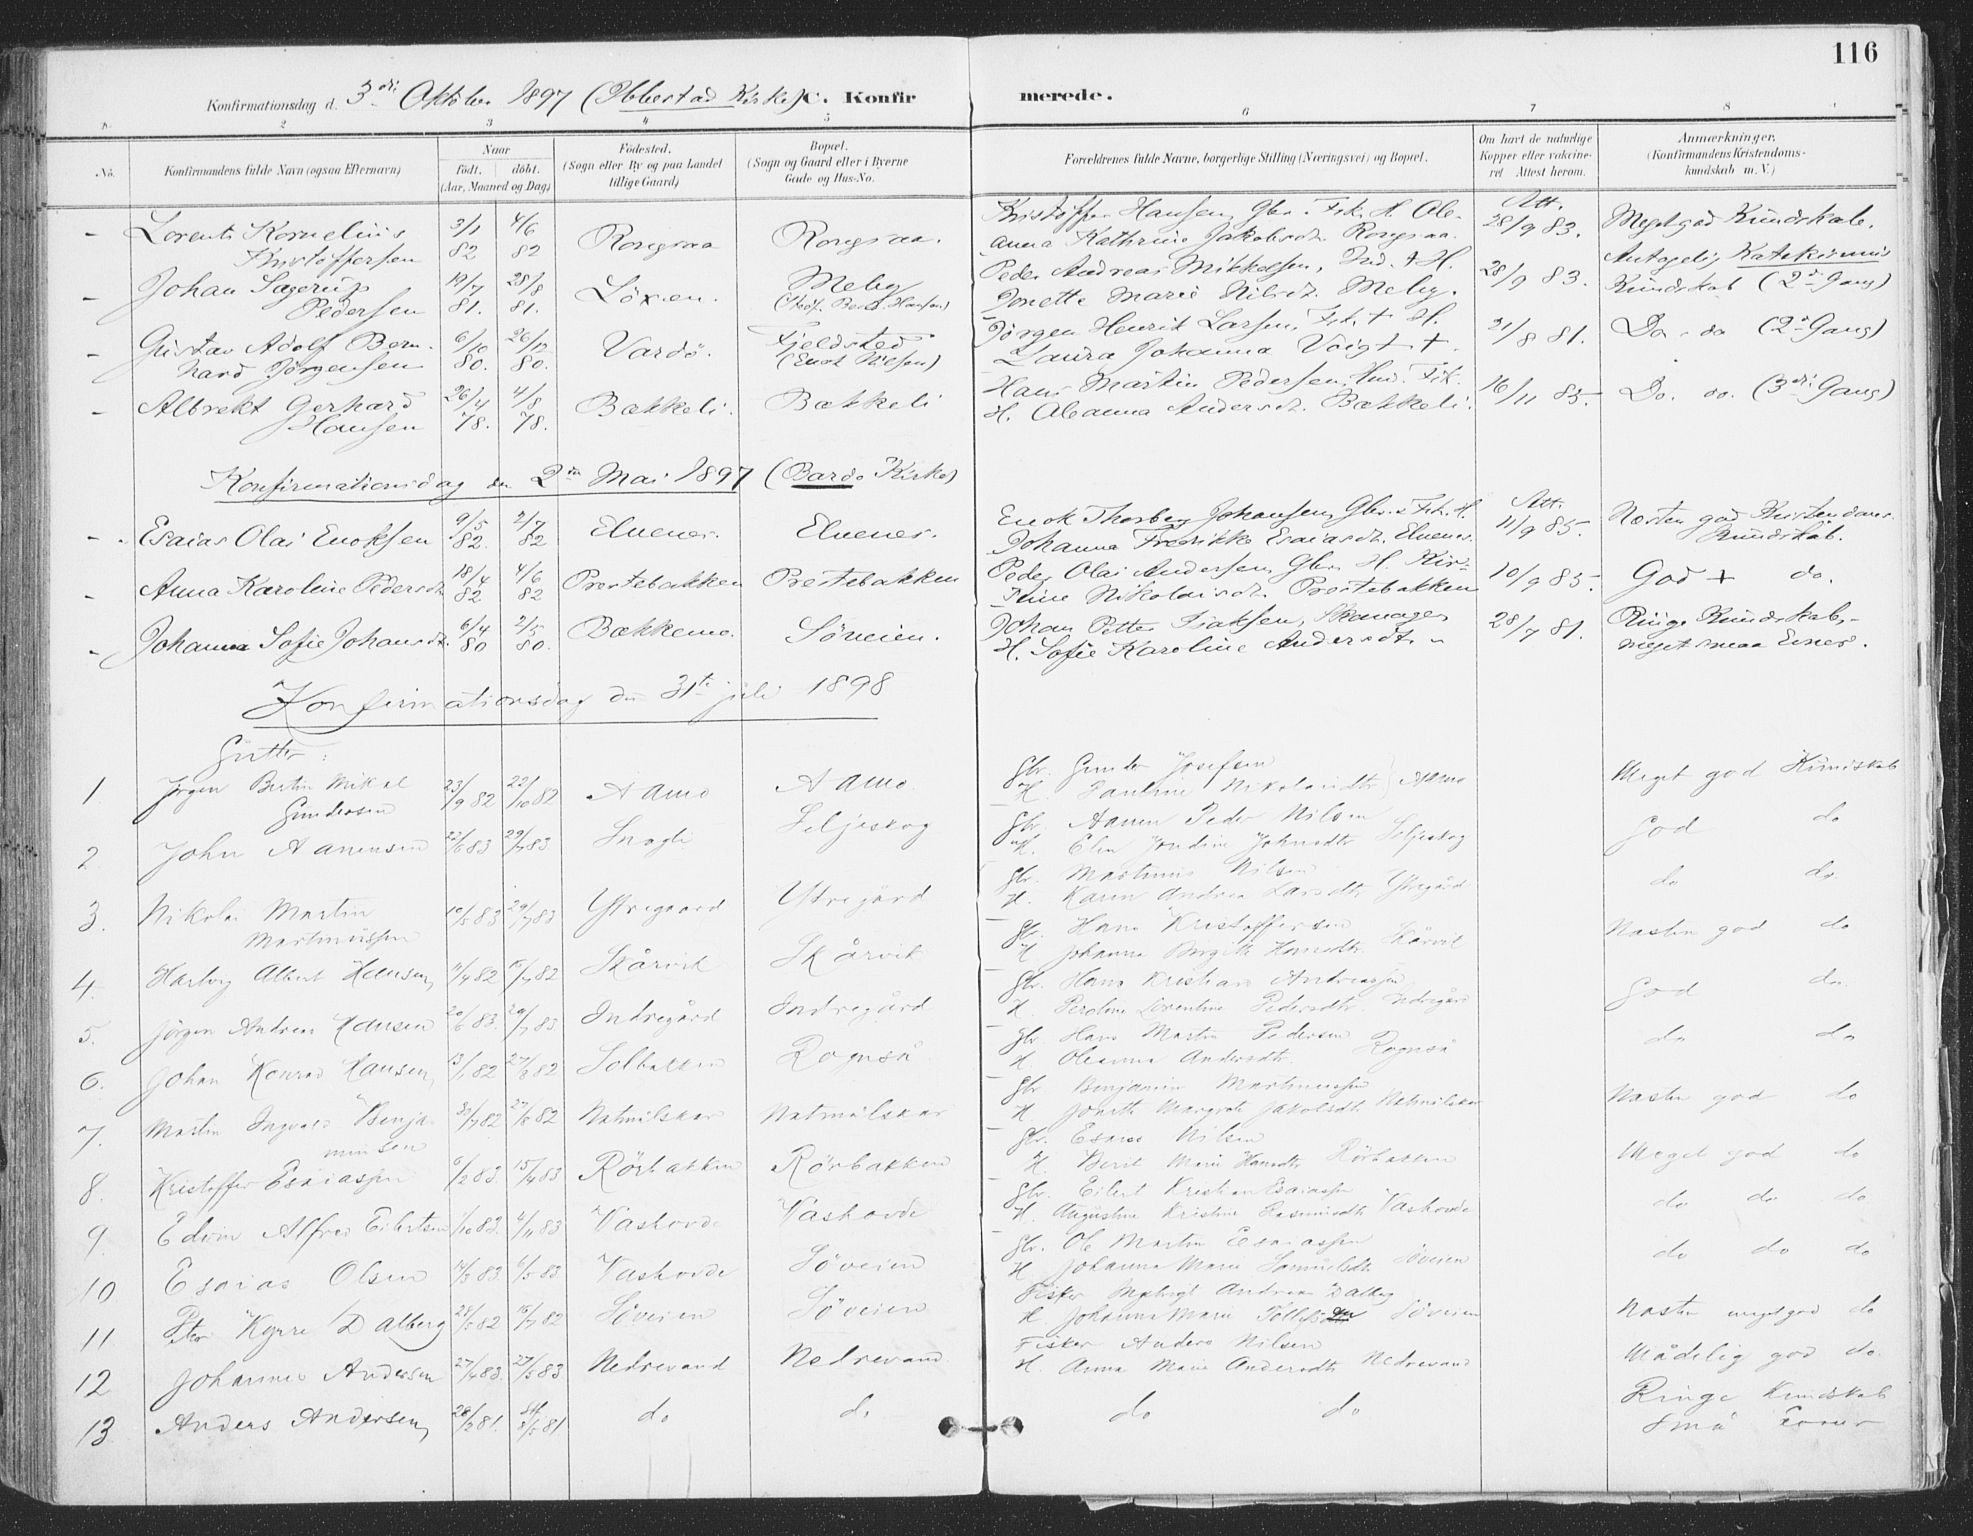 116
Konfirmationsdag d. 3die Oktober 1897 (Ibbestad Kirke) C. Konfirmerede.
1 2 3 4 5 6 7 8
No. Konfirmandens fulde Navn (ogsaa Efternavn) Naar födt. döbt. (Aar, Maaned og Dag) Födested. (Sogn eller By og paa Landet tillige Gaard) Bopæl. (Sogn og Gaard eller i Byerne Gade og Hus-No. Forældrenes fulde Navne, borgerlige Stilling (Næringsvei) og Bopæl. Om havt de naturlige Kopper eller vakcineret Attest herom. Anmærkninger. (Konfirmandens Kristendomskundskab m. V.)
- Lorents Kornelius 3/1 4/6 Rongsaa Rongsaa. Kristoffer Hansen, Gbr. Fsk. H. Ole- Att. 28/9 83. Meget god Kundskab.
Kristoffersen 82 82 anna Kathrine Jakobsdt. Rongsaa.
- Johan Sagerup 19/7 28/8 Löxen. Meby Peder Andreas Mikkelsen, Ind. + H. 28/9 83. Antagelig Katekismus
Pedersen 81. 81. Jonette Marie Nilsdt. Meby. Kundskab (2den Gang)
- Gustav Adolf Bern- 6/10 26/12 Vardö. Fjeldsted Jörgen Henrik Larsen, Fsk. + H. 31/8 81. Do. do (2den Gang)
hard Jörgensen 80. 80. (Enok Nilsen) Laura Johanna Voigt +
- Albrekt Gerhard 26/4 4/8 Bækkeli. Bækkeli Hans Martin Pedersen, Ind. Fsk. 16/11 85. Do. do. (3die Gang)
Hansen 78. 78. H. Oleanna Andersdt. Bækkeli.
Konfirmationsdag den 2den Mai 1897 (Bardo Kirke)
- Esaias Olai Enoksen 9/5 82. 2/7 82 Elvenes. Elvenes. Enok Thorberg Johansen, Gbr. & Fsk. H. Att. 11/9 85. Næsten god Kristendoms-
Johanna Fredrikke Esaiasdt. Elvenes. Kundskab.
- Anna Karoline Pedersdt. 18/4 82 4/6 82 Prestebakken Prestebakken Peder Olai Andersen, Gbr. H. Kir- 10/9 85. God + do.
stine Nikolaisdt. Prestebakken
- Johanna Sofie Johansdt. 6/4 80 2/5 80. Bækkemo. Söveien. Johan Petter Isaksen, Skomager 28/7 81. Ringe Kundskab,
H. Sofie Karoline Andersdt. " meget smaa Evner.
Konfirmationsdag den 31te juli 1898
Gutter:
1 Jørgen Bertin Mikal 23/9 82 22/10 82 Aamo Aamo Gbr. Gunder Josefsen Meget god Kundskab
Gundersen H. Pauline Nikolaidtr. Aamo
2 John Aanensen 22/6 83 29/7 83. Inagli Seljeskog Gbr. Aanen Peder Nilsen God do
H. Elen Jondine Johnsdtr Seljeskog
3. Nikolai Martin 10/5 83 29/7 83 Ytregaard Ytregård Gbr. Martinus Nilsen do do.
Martinussen H. Karen Andrea Larsdtr Ytregård
4. Hartvig Albert Hansen 11/4 82 15/7 82 Skårvik Skårvik Gbr. Hans Kristoffersen Næsten god do
H Johanna Birgitte Hansdtr. Skårvik
5. Jørgen Andreas Hansen 20/6 83. 29/7 83 Indregård Indregård Gbr. Hans Kristian Andreassen God do.
H. Peroline Lorentine Pedersdtr. Indregård
6. Johan Konrad Hansen 13/1 82 27/8 82 Solbakken Rognså Gbr. Hans Martin Pedersen do do
H Oleanna Andersdtr. Rognså
7. Martin Ingvald Benja- 30/7 82 27/8 82 Natmålskar Natmålskar Gbr. Benjamin Martinussen Næsten god do
minsen H Jonette Margrete Jakobsdt. Natmålskar
8. Kristoffer Esaiassen 6/2 83 15/4 83 Rörbakken Rörbakken Gbr. Esaias Nilsen Meget god do
H. Berit Marie Hansdtr Rörbakken
9. Edvin Alfred Eilertsen 1/10 82. 4/11 83 Vashovde Vashovde Gbr. Eilert Kristian Esaiassen do do do
H. Augustine Kristine Rasmusdtr Vashovde
10 Esaias Olsen 14/3 83. 6/5 83. Vashovde Söveien Gbr. Ole Martin Esaiassen do do do
H Johanna Marie Samuelsdtr Söveien
11. Peter Kyrre Dalberg 28/5 82 16/7 82 Söveien Söveien Fisker Andreas Dalberg Næsten meget god do
H. Johanna Marie Söveien
12 Johannes Andersen 27/4 83. 27/5 83 Nedrevand Nedrevand Fisker Anders Nilsen Mådelig god do.
H. Anna Marie Andersdtr Nedrevand
13 Anders Andersen 28/2 81. 8/5 81 do do do do Ringe Kundskab
Små Evner